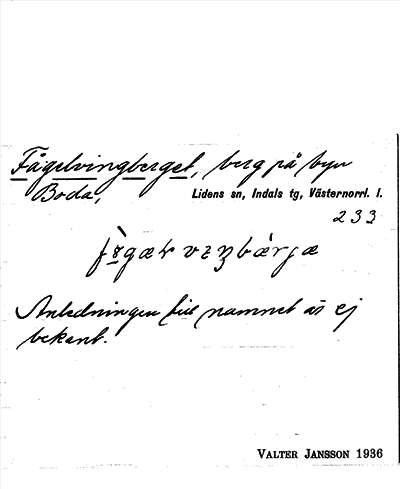 Fågelvingberget, berg på byn
Boda,
Lidens sn, Indals tg, Västernorrl. l.
233
Anledningen till namnet är ej
bekant.
VALTER JANSSON 1936